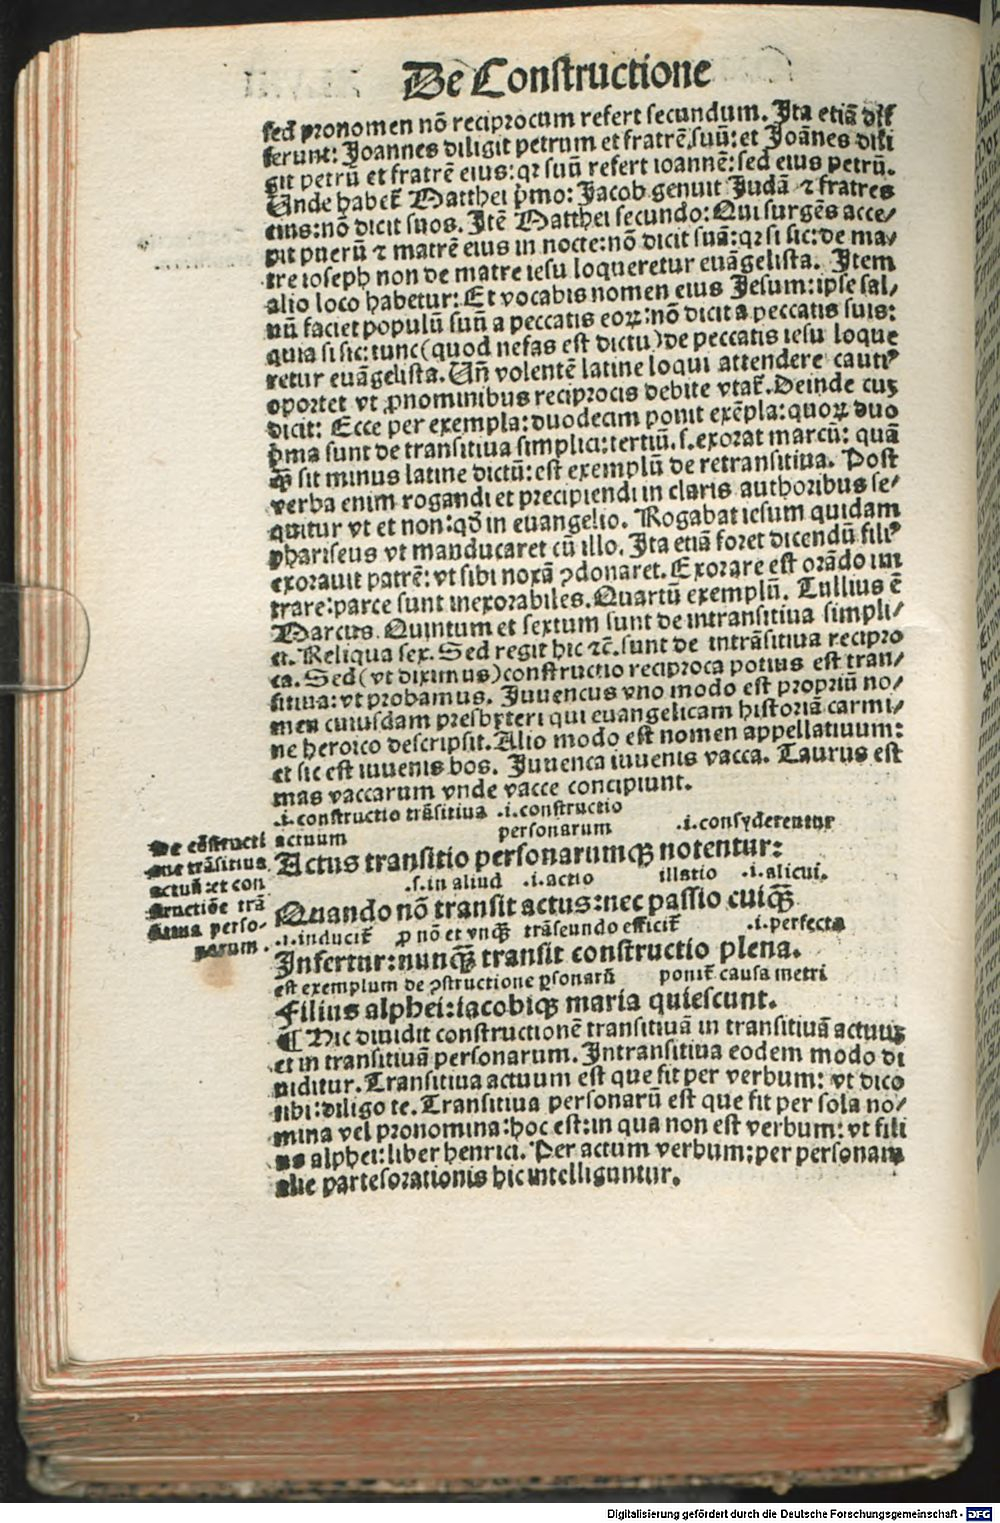 De Constructione
sed pronomen nō reciprocum refert secundum. Ita etiā dif
ferunt: Joannes diligit petrum et fratrē suū: et Joānes dili
git petrū et fratrē eius: qꝛ suū refert ioannē: sed eius petrū.
Unde habet᷑ Matthei pͥmo: Jacob genuit Judā ⁊ fratres
eius: nō dicit suos. Itē Matthei secundo: Qui surgēs acce/
pit puerū ⁊ matrē eius in nocte: nō dicit suā: qꝛ si sic: de ma/
tre ioseph non de matre iesu loqueretur euāgelista. Item
alio loco habetur: Et vocabis nomen eius Jesum: ipse sal/
uū faciet populū suū a peccatis eoꝝ: nō dicit a peccatis suis:
quia si sic: tunc (quod nefas est dictu) de peccatis iesu loque
retur euāgelista. Uñ volentē latine loqui attendere cautiꝰ
oportet vt ꝓnominibus reciprocis debite vtat᷑. Deinde cuꝫ
dicit: Ecce per exempla: duodecim ponit exēpla: quoꝝ duo
pͥma sunt de transitiua simplici: tertiū .s. exorat marcū: quā
qͣꝫ sit minus latine dictū: est exemplū de retransitiua. Post
verba enim rogandi et precipiendi in claris authoribus se/
quitur vt et non: qđ in euangelio. Rogabat iesum quidam
phariseus vt manducaret cū illo. Ita etiā foret dicendū filiꝰ
exorauit patrē: vt sibi noxā ꝯdonaret. Exorare est orādo im
trare: parce sunt inexorabiles. Quartū exemplū. Tullius ē
Marcus. Quintum et sextum sunt de intransitiua simpli/
ci. Reliqua sex. Sed regit hic ⁊c̄. sunt de intrāsitiua recipro
ca. Sed (vt diximus) constructio reciproca potius est tran/
sitiua: vt probamus. Juuencus vno modo est propriū no/
men cuiusdam presbyteri qui euangelicam historiā carmi/
ne heroico descripsit. Alio modo est nomen appellatiuum:
et sic est iuuenis bos. Juuenca iuuenis vacca. Taurus est
mas vaccarum vnde vacce concipiunt.
.i. constructio trāsitiua .i. constructio
actuum personarum .i. consyderentur
De cōstructi
one trāsitiua
actuū: et con
structiōe trā
sitiua perso-
narum.
Actus transitio personarumqꝫ notentur:
.s. in aliud .i. actio illatio .i. alicui.
Quando nō transit actus: nec passio cuiqͣꝫ
.i. inducit᷑ ꝓ nō et vnqͣꝫ trāseundo efficit᷑ .i. perfecta
Infertur: nunqͣꝫ transit constructio plena.
est exemplum de ꝯstructione ꝑsonarū ponit᷑ causa metri
Filius alphei: iacobiqꝫ maria quiescunt.
¶ Hic diuidit constructionē transitiuā in transitiuā actuuꝫ
et in transitiuā personarum. Intransitiua eodem modo di
uiditur. Transitiua actuum est que fit per verbum: vt dico
tibi: diligo te. Transitiua personarū est que fit per sola no/
mina vel pronomina: hoc est: in qua non est verbum: vt fili
us alphei: liber henrici. Per actum verbum: per personam
alie partes orationis hic intelliguntur.
Digitalisierung gefördert durch die Deutsche Forschungsgemeinschaft - DFG